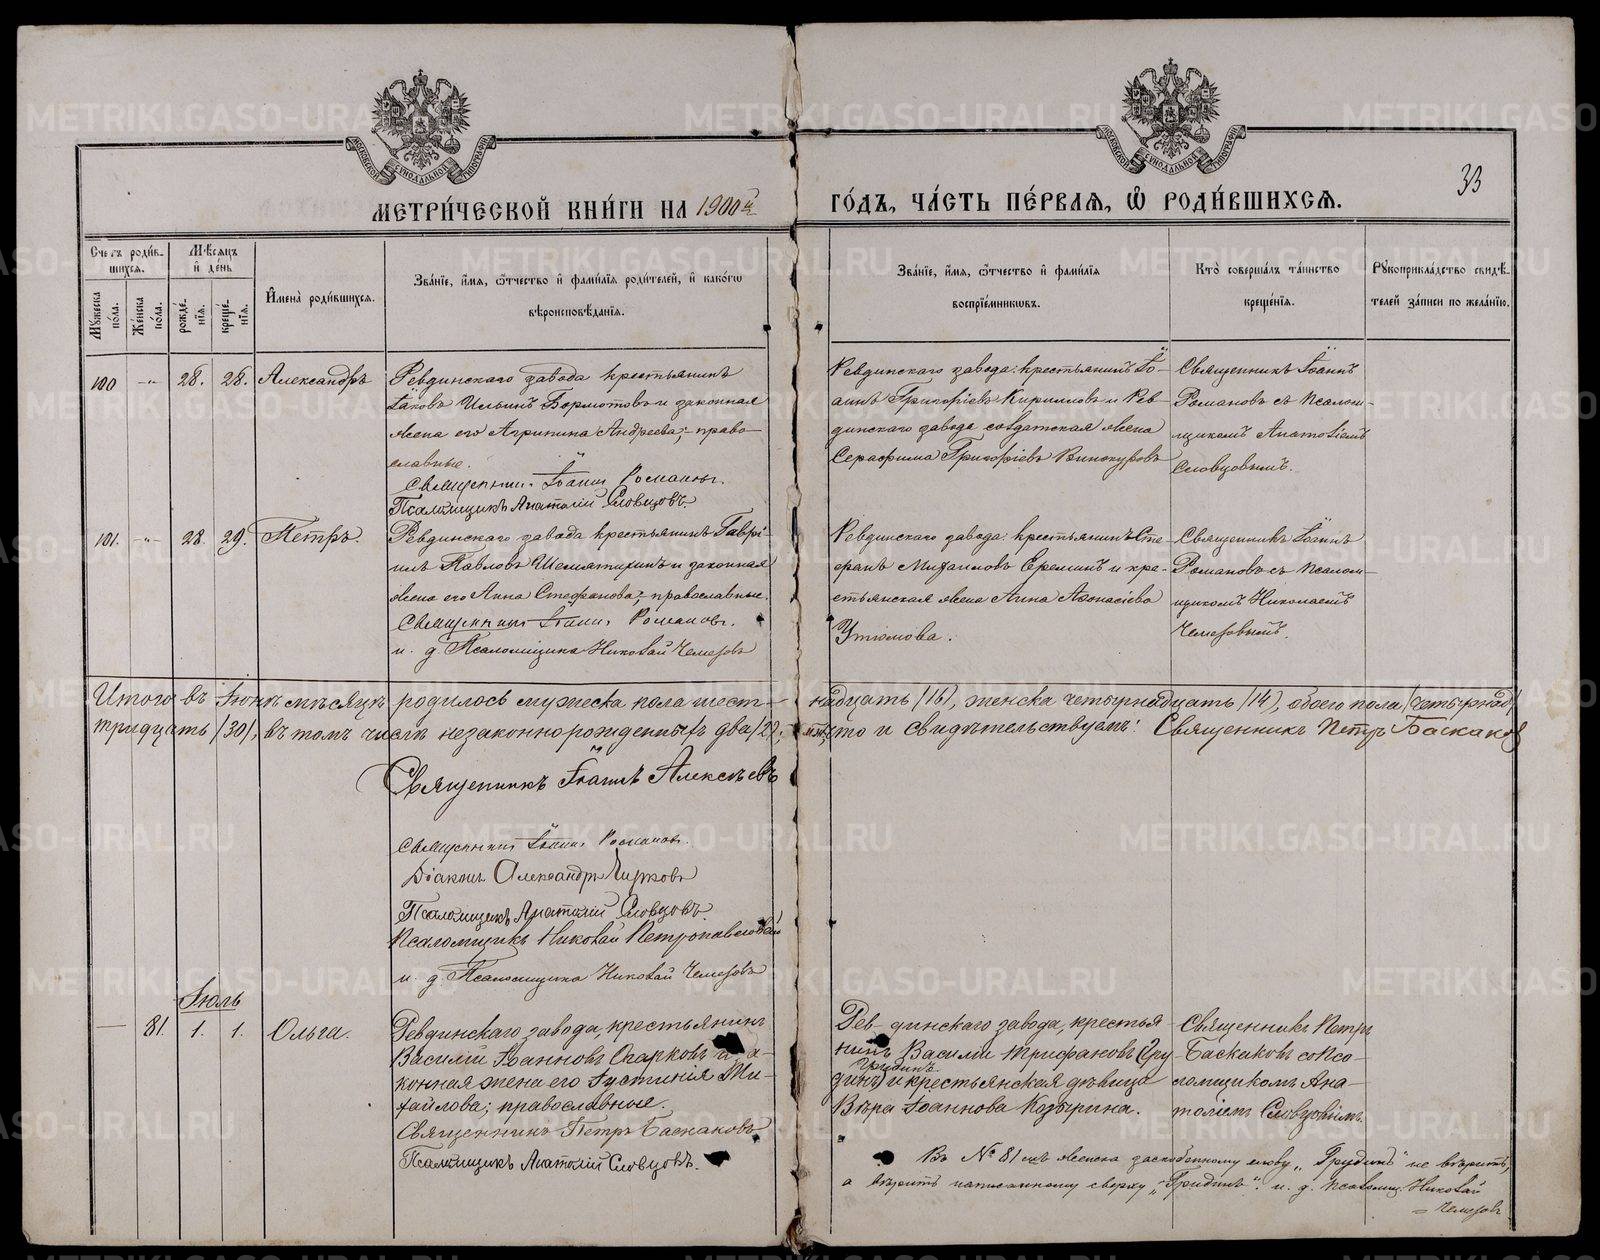 МЕТРИ́ЧЕСКОЙ КНИ́ГИ НА 1900й
ГО́ДЪ, ЧА́СТЬ ПЕ́РВАЯ, Ѡ РОДИ́ВШИХСЯ.
33
Счетъ роди́в-
шихся.
Мꙋ́жеска по́ла.
Же́нска по́ла.
Мѣ́сяцъ
и҆ де́нь
рожде́нїя.
креще́нїя.
И҆мена̀ роди́вшихся.
Зва́нїе, и҆́мя, ѻ҆́тчество и҆ фами́лїя роди́телей, и҆ како́гѡ
вѣроисповѣ́данїя.
Зва́нїе, и҆́мя, ѻ҆́тчество и҆ фами́лїя
воспрїе́мниковъ.
Кто̀ соверша́лъ та́инство
креще́нїя.
Рꙋкоприкла́дство свидѣ́-
телей за́писи по жела́нїю.
100 -"- 28. 28. Александръ
Ревдинскаго завода крестьянинъ
Іаковъ Ильинъ Бормотовъ и законная
жена его Агрипина Андреева; право-
славные.
Священникъ Іоаннъ Романовъ.
Псаломщикъ Анатолій Словцовъ.
Ревдинскаго завода: крестьянинъ Іо-
аннъ Григоріевъ Кирилловъ и Рев-
динскаго завода солдатская жена
Серафима Григоріевъ Винокуровъ
Священникъ Іоаннъ
Романовъ съ псалом-
щикомъ Анатоліемъ
Словцовымъ.
101. -"- 28. 29. Петръ.
Ревдинскаго завода крестьянинъ Гаврі-
илъ Павловъ Шемятихинъ и законная
жена его Анна Стефанова; православные.
Священникъ Іоаннъ Романовъ.
и. д. Псаломщика Николай Чемезовъ
Ревдинскаго завода: крестьянинъ Сте-
фанъ Михаиловъ Ереминъ и кре-
стьянская жена Анна Аѳонасіева
Утюмова.
Священникъ Іоаннъ
Романовъ съ псалом-
щикомъ Николаемъ
Чемезовымъ.
Итого въ Іюнѣ мѣсяцѣ родилось мужеска пола шест-надцать /16/, женска четырнадцать /14/, обоего пола /четырнад/
тридцать /30/, въ томъ числѣ незаконнорожденныхъ два /2/; что и свидѣтельствуемъ: Священникъ Петръ Баскаковъ
Священникъ Іоаннъ Алексѣевъ
Священникъ Іоаннъ Романовъ.
Діаконъ Александръ Чирковъ
Псаломщикъ Анатолій Словцовъ.
Псаломщикъ Николай Петропавловскій
и. д. Псаломщика Николай Чемезовъ
Іюль
— 81. 1. 1. Ольга.
Ревдинскаго завода, крестьянинъ
Василій Іоанновъ Огарковъ и за-
конная жена его Іустинія Ми-
хайлова; православные.
Священникъ Петръ Баскаковъ
Псаломщикъ Анатолій Словцовъ.
Рев-динскаго завода, крестья
нинъ Василій Трифановъ (Гру
Гридинъ
динъ) и крестьянская дѣвица
Вѣра Іоаннова Козырина.
Священникъ Петръ
Баскаковъ со Псо-
ломщикомъ Ана-
толіем Словцовым.
Въ № 81 мъ женска заскобенному слову „Грудинъ" не вѣрить,
а вѣрить написанному сверху „Гридинъ". и. д. псаломщ. Николай
Чемезовъ